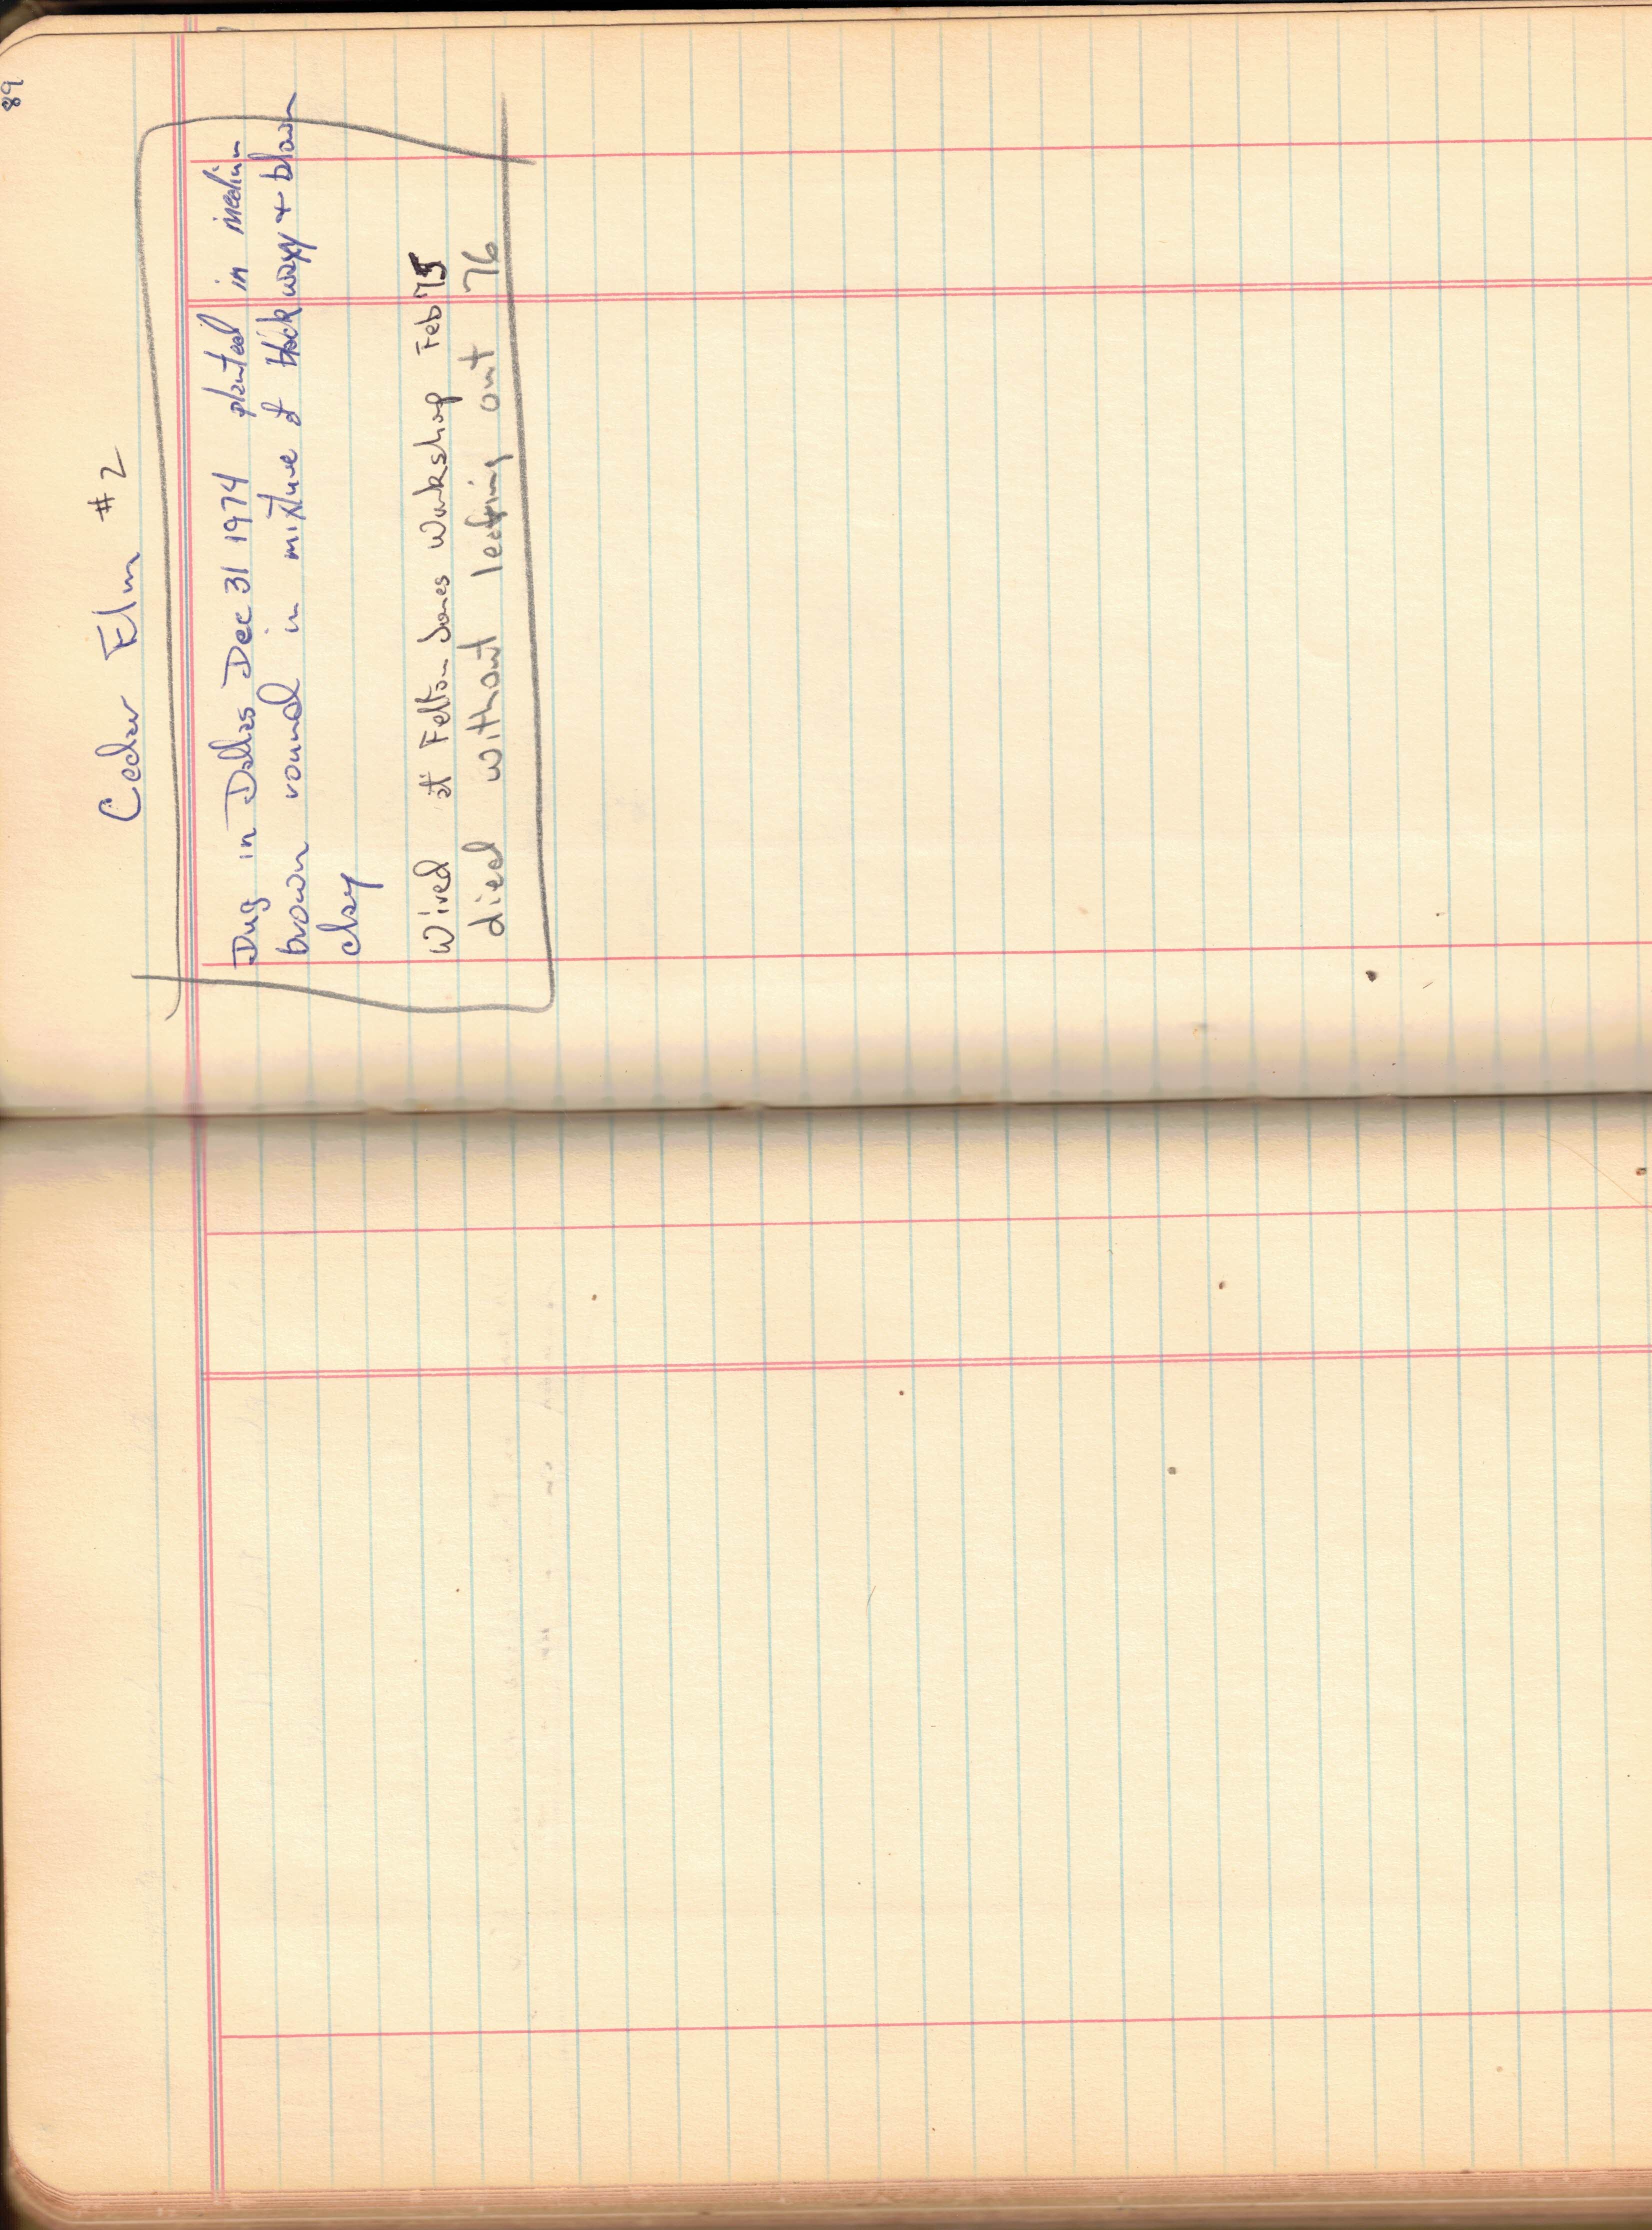 89
Cedar Elm #2
Dug in Dallas Dec 31 1974 planted in medium
brown round in mixture of black waxy + blown
clay
Wired at Felton Jones Workshop Feb 75
died without leafing out 76